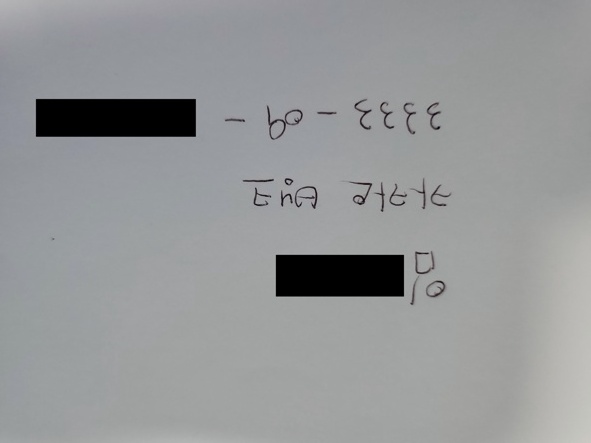 임
카카오 뱅크
3333 - 09 -